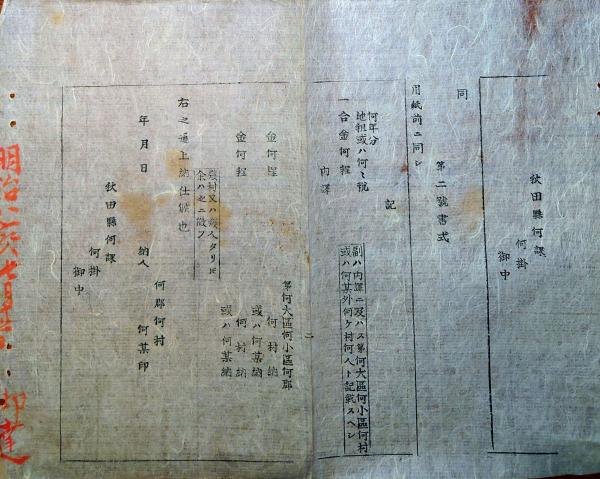 秋田縣何課
何掛
御中
同
第二號書式
用紙前ニ同シ
記
何年分
地租或ハ何々税
一合金何程
副ハ内譯ニ及ハス第何大區何小區何村
或ハ何某外何ケ村何人ト記載スヘシ
内譯
二
第何大區何小區何郡
金何程
何村納
或ハ何某納
金何程
何村納
或ハ何某納
餘ハ之ニ傚フ
右之通上納仕候也
年月日
何郡何村
納人
何某印
秋田縣何課
何掛
御中
明治